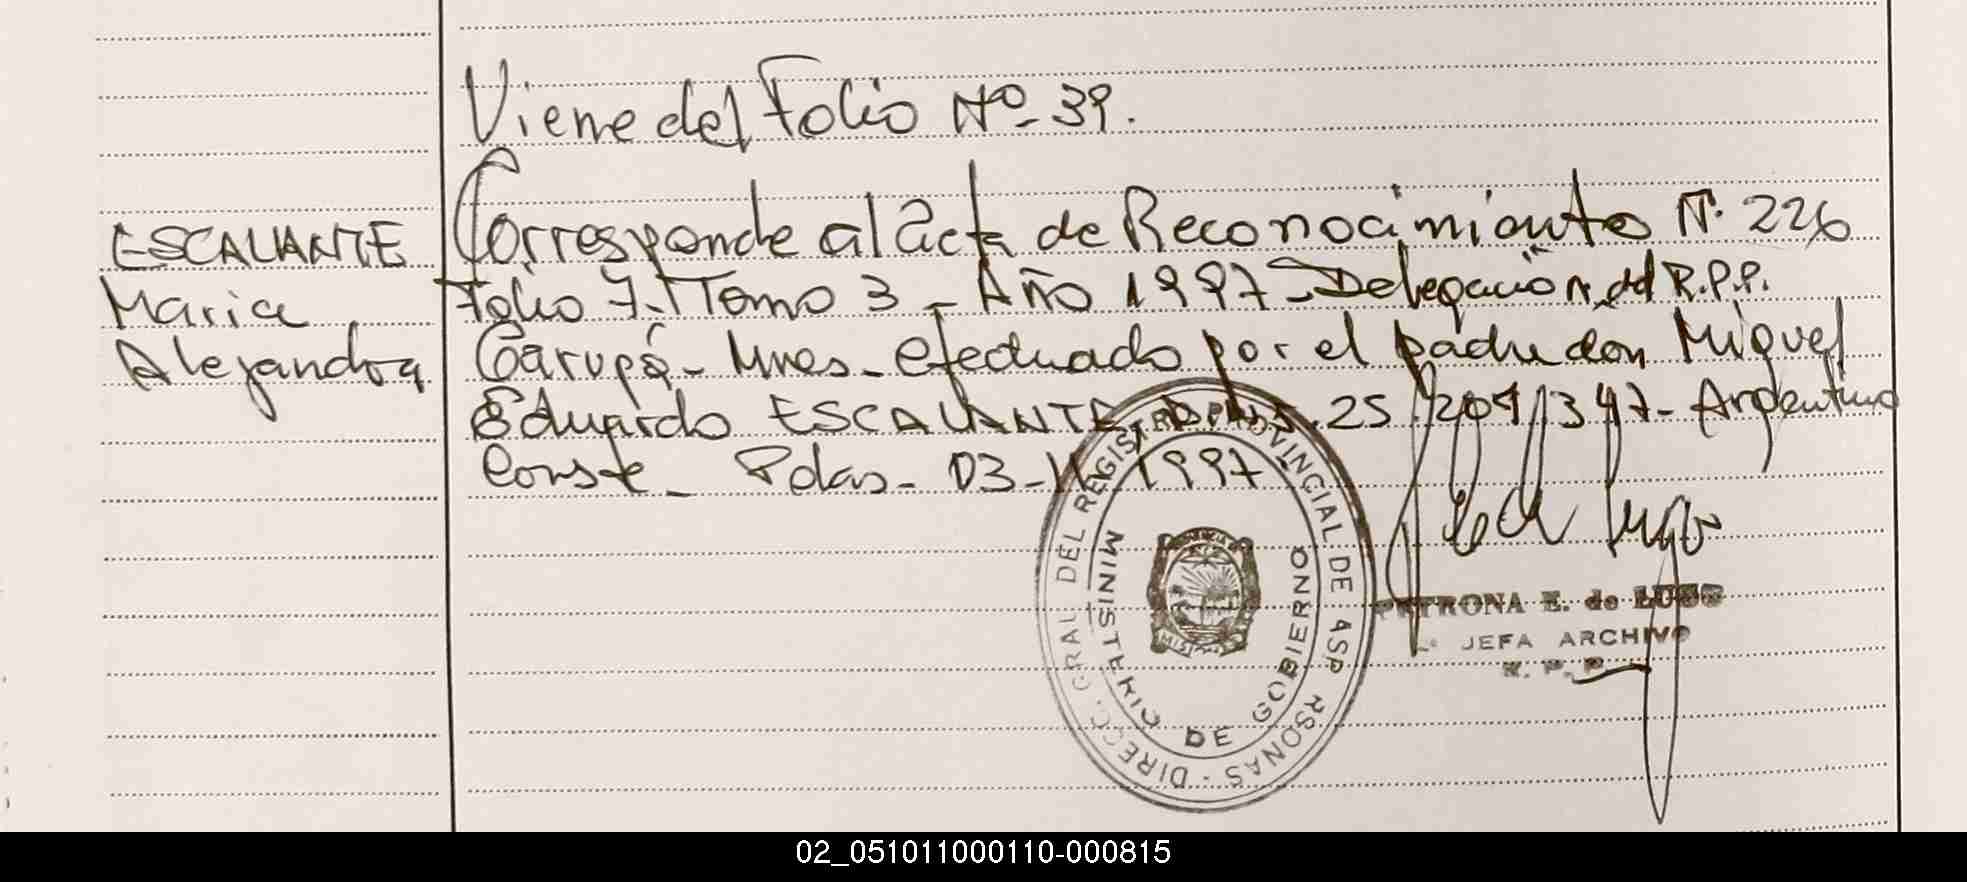 Viene del Folio Nº 39.
ESCALANTE
Maria
Alejandra
Corresponde al acta de Reconocimiento Nº 226
Folio 7. Tomo 3 - Año 1997 - Delegación del R.P.P.
Garupá - Mnes - efectuado por el padre don Miguel
Eduardo ESCALANTE, D.N.I. 25.204.347 - Argentino
Conste - Pdas - 03-11-1997
DIRECC. GRAL DEL REGISTRO PROVINCIAL DE LAS PERSONAS
MINISTERIO DE GOBIERNO
PETRONA E. de LUGO
JEFA ARCHIVO
R. P. P.
02_051011000110-000815